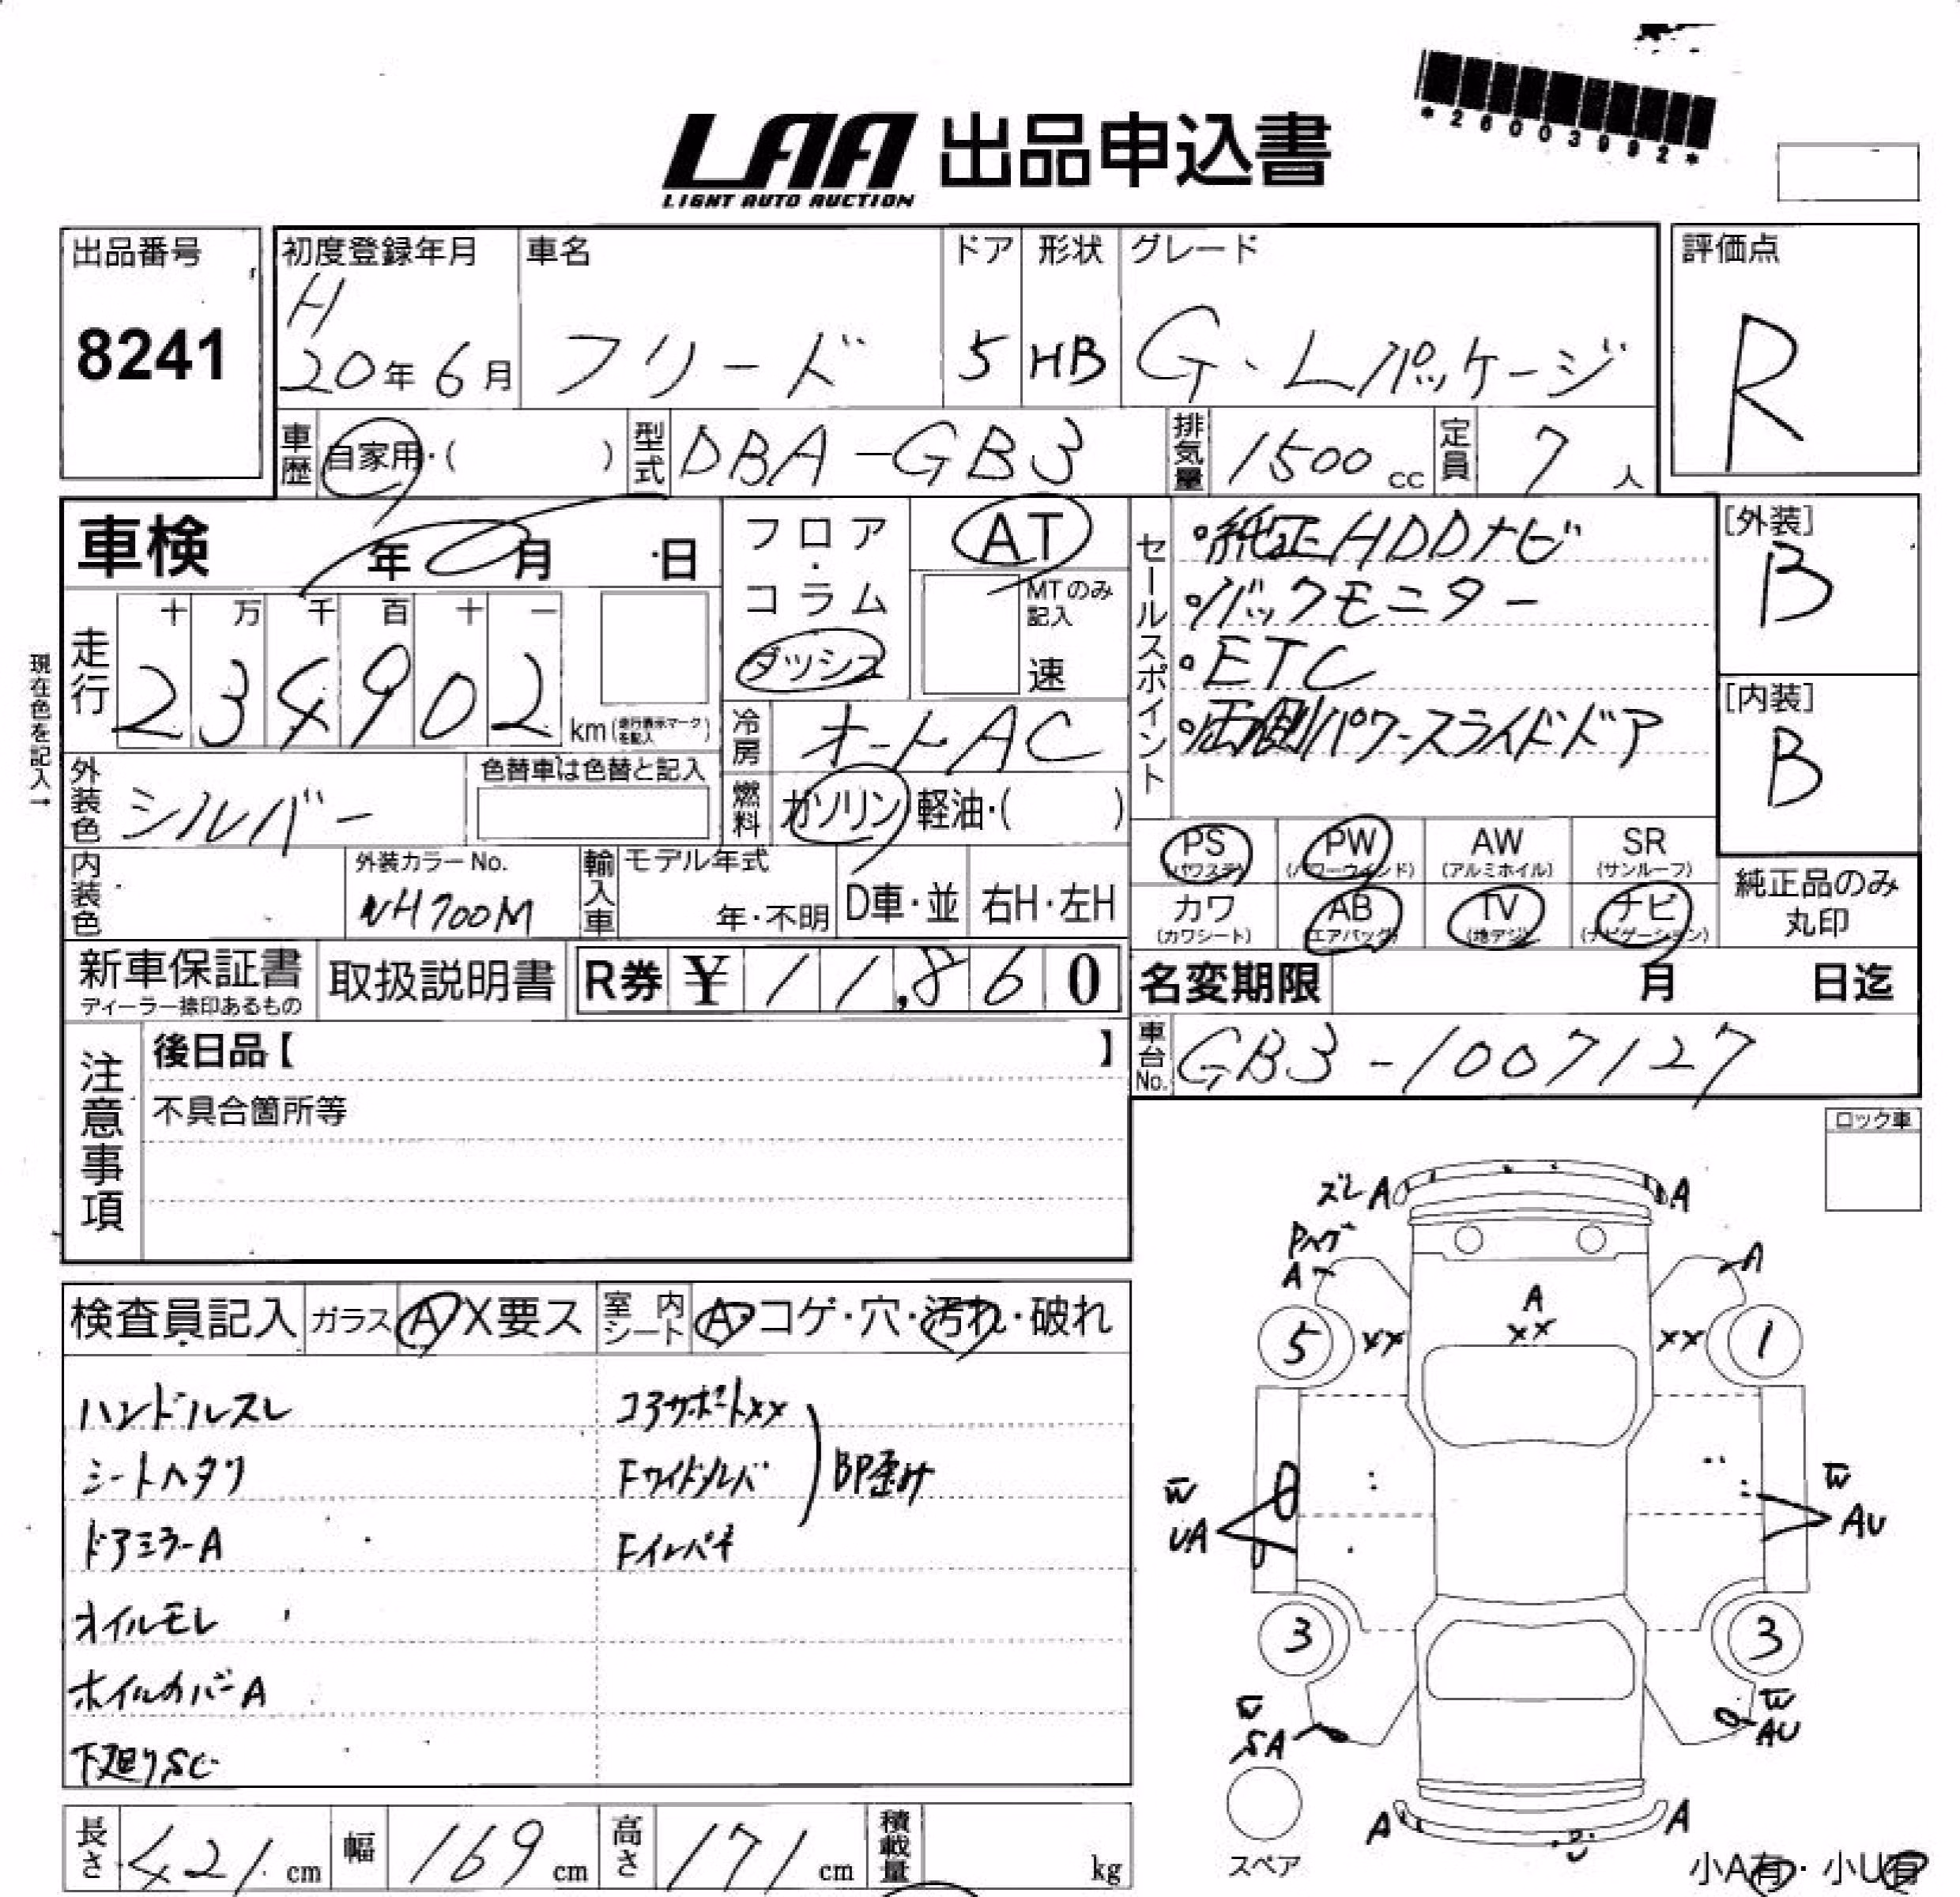 *26003992*
LAA 出品申込書
LIGHT AUTO AUCTION
出品番号
8241
初度登録年月
H
20年6月
車名
フリード
ドア
5
形状
HB
グレード
G・Lパッケージ
評価点
R
車歴
自家用・( )
型式
DBA-GB3
排気量
1500cc
定員
7人
車検 年 月 日
フロア・コラム
ダッシュ
AT
MTのみ記入
速
セールスポイント
・純正HDDナビ
・バックモニター
・ETC
・両側パワースライドドア
[外装]
B
[内装]
B
現在色を記入→
走行
十万千百十一
234902
km(走行表示マークを記入)
冷房
オートAC
外装色
シルバー
色替車は色替と記入
燃料
ガソリン 軽油・( )
内装色
外装カラーNo.
NH700M
輸入車
モデル年式
年・不明
D車・並
右H・左H
PS
(パワステ)
PW
(パワーウインド)
AW
(アルミホイル)
SR
(サンルーフ)
カワ
(カワシート)
AB
(エアバッグ)
TV
(地デジ)
ナビ
(ナビゲーション)
純正品のみ
丸印
新車保証書
ディーラー捺印あるもの
取扱説明書
R券 ¥ 11,860
名変期限 月 日迄
車台No.
GB3-1007127
注意事項
後日品【 】
不具合箇所等
ロック車
検査員記入
ガラス
A X要ス
室内シート
A・コゲ・穴・汚れ・破れ
ハンドルスレ
シートヘタリ
ドアミラーA
オイルモレ
ホイルカバーA
下廻りSC
コアサポートXX
Fサイドメンバ
BP歪み
Fインパネ
ズレA
A
Pヘゲ
A
A
A
XX
5
XX
XX
1
W
UA
W
AU
3
3
W
SA
W
AU
スペア
A
A
小A有・小U有
長さ
421cm
幅
169cm
高さ
171cm
積載量
kg